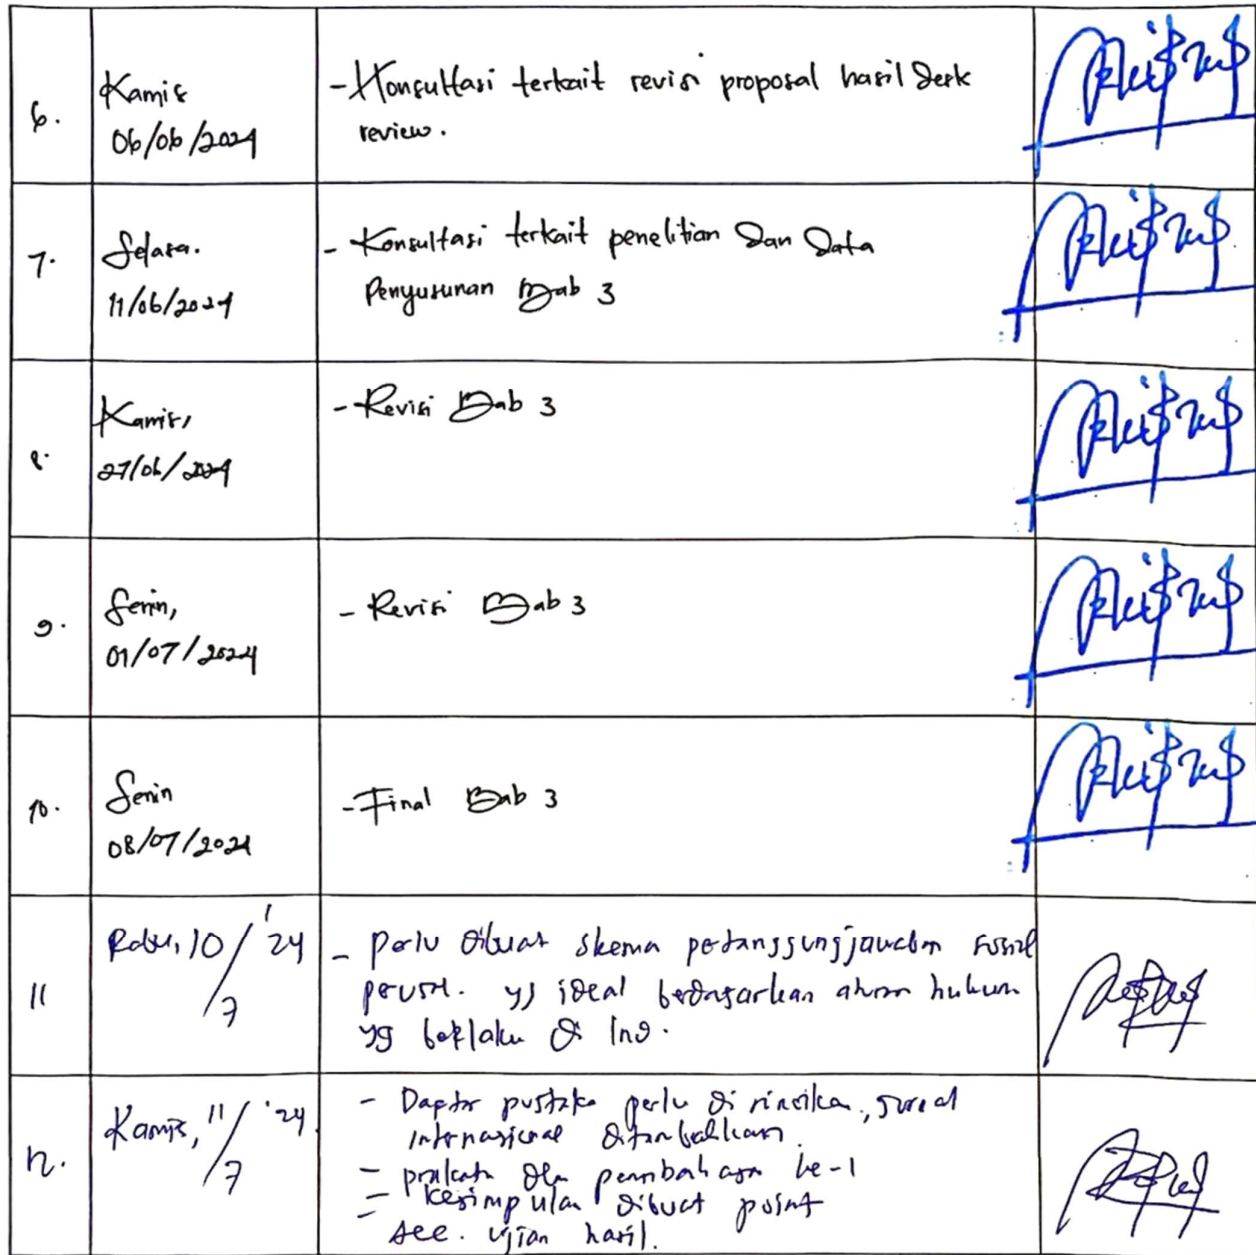 6.
Kamis
06/06/2024
- Konsultasi terkait revisi proposal hasil desk
review.
7.
Selasa.
11/06/2024
- Konsultasi terkait penelitian dan data
Penyusunan Bab 3
8.
Kamis,
27/06/2024
- Revisi Bab 3
9.
Senin,
01/07/2024
- Revisi Bab 3
10.
Senin
08/07/2024
- Final Bab 3
11
Rabu, 10/7 '24
- perlu dibuat skema pertanggungjawaban sosial
perush. yg ideal berdasarkan aturan hukum
yg berlaku di Ind.
12.
Kamis, 11/7 '24.
- Daftar pustaka perlu di
internasional ditambahkan.
- dlm pembahasan ke-1
- kesimpulan dibuat point
- acc. ujian hasil.